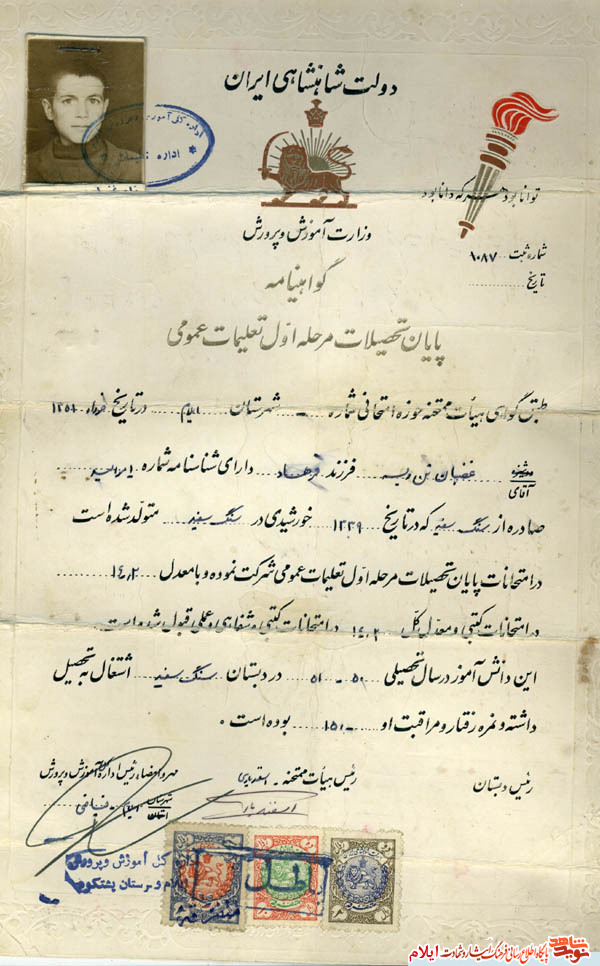 دولت شاهنشاهی ایران
توانا بود هر که دانا بود
وزارت آموزش و پرورش
شماره ثبت ۱۰۸۷
تاریخ
گواهینامه
پایان تحصیلات مرحله اول تعلیمات عمومی
طبق گواهی هیأت ممتحنه حوزه امتحانی شماره - شهرستان ایلام در تاریخ خرداد
دوشیزه
آقای
غضبان فرزند فرهاد دارای شناسنامه شماره
صادره از سنگ سفید که در تاریخ ۱۳۳۹ خورشیدی در سنگ سفید متولد شده است
در امتحانات پایان تحصیلات مرحله اول تعلیمات عمومی شرکت نموده و با معدل ۱۴٫۰۲
در امتحانات کتبی و معدل کل ۱۴٫۰۲ در امتحانات کتبی و شفاهی و عملی قبول شده است.
این دانش آموز در سال تحصیلی ۵۰ - ۵۱ در دبستان سنگ سفید اشتغال به تحصیل
داشته و نمره رفتار و مراقبت او ۱۵ بوده است.
رئیس دبستان
رئیس هیأت ممتحنه
مهر و امضاء رئیس اداره آموزش و پرورش
شهرستان
استان
اداره کل آموزش و پرورش
ایلام و لرستان پشتکوه
باطل شد
نوید شاهد
پایگاه اطلاع رسانی فرهنگ ایثار و شهادت ایلام